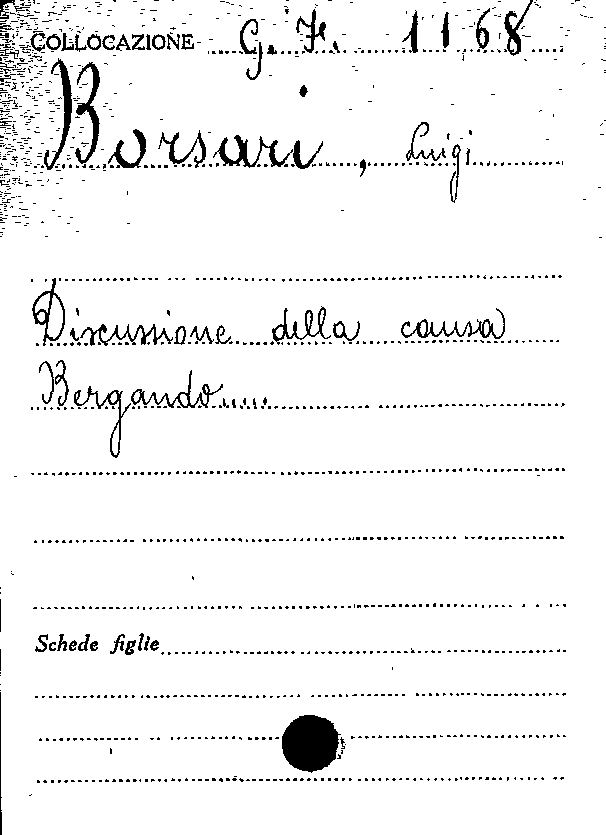 COLLOCAZIONE G. F. 1168
Borsari, Luigi
Discussione della causa
Bergando.....
Schede figlie